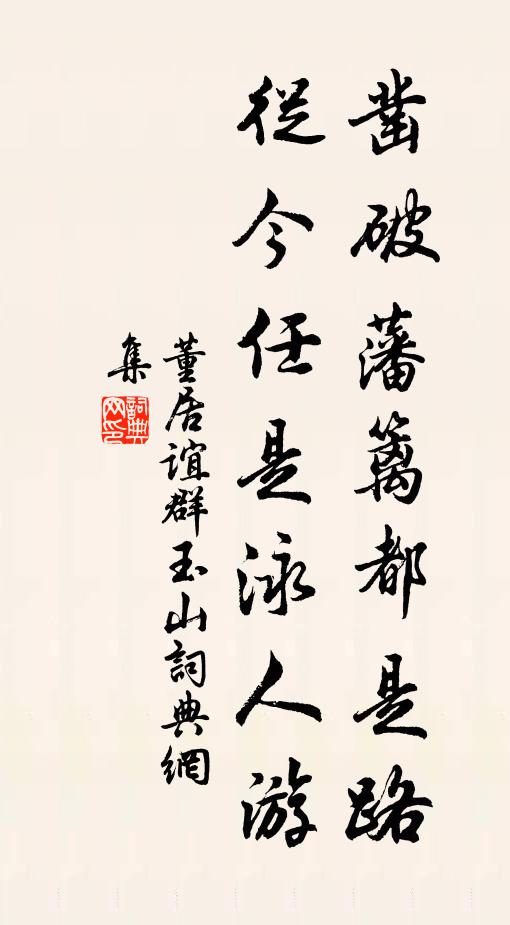 凿破藩篱都是路
從今任是泳人游
董居谊群玉山詞典網
集
詞典
网印